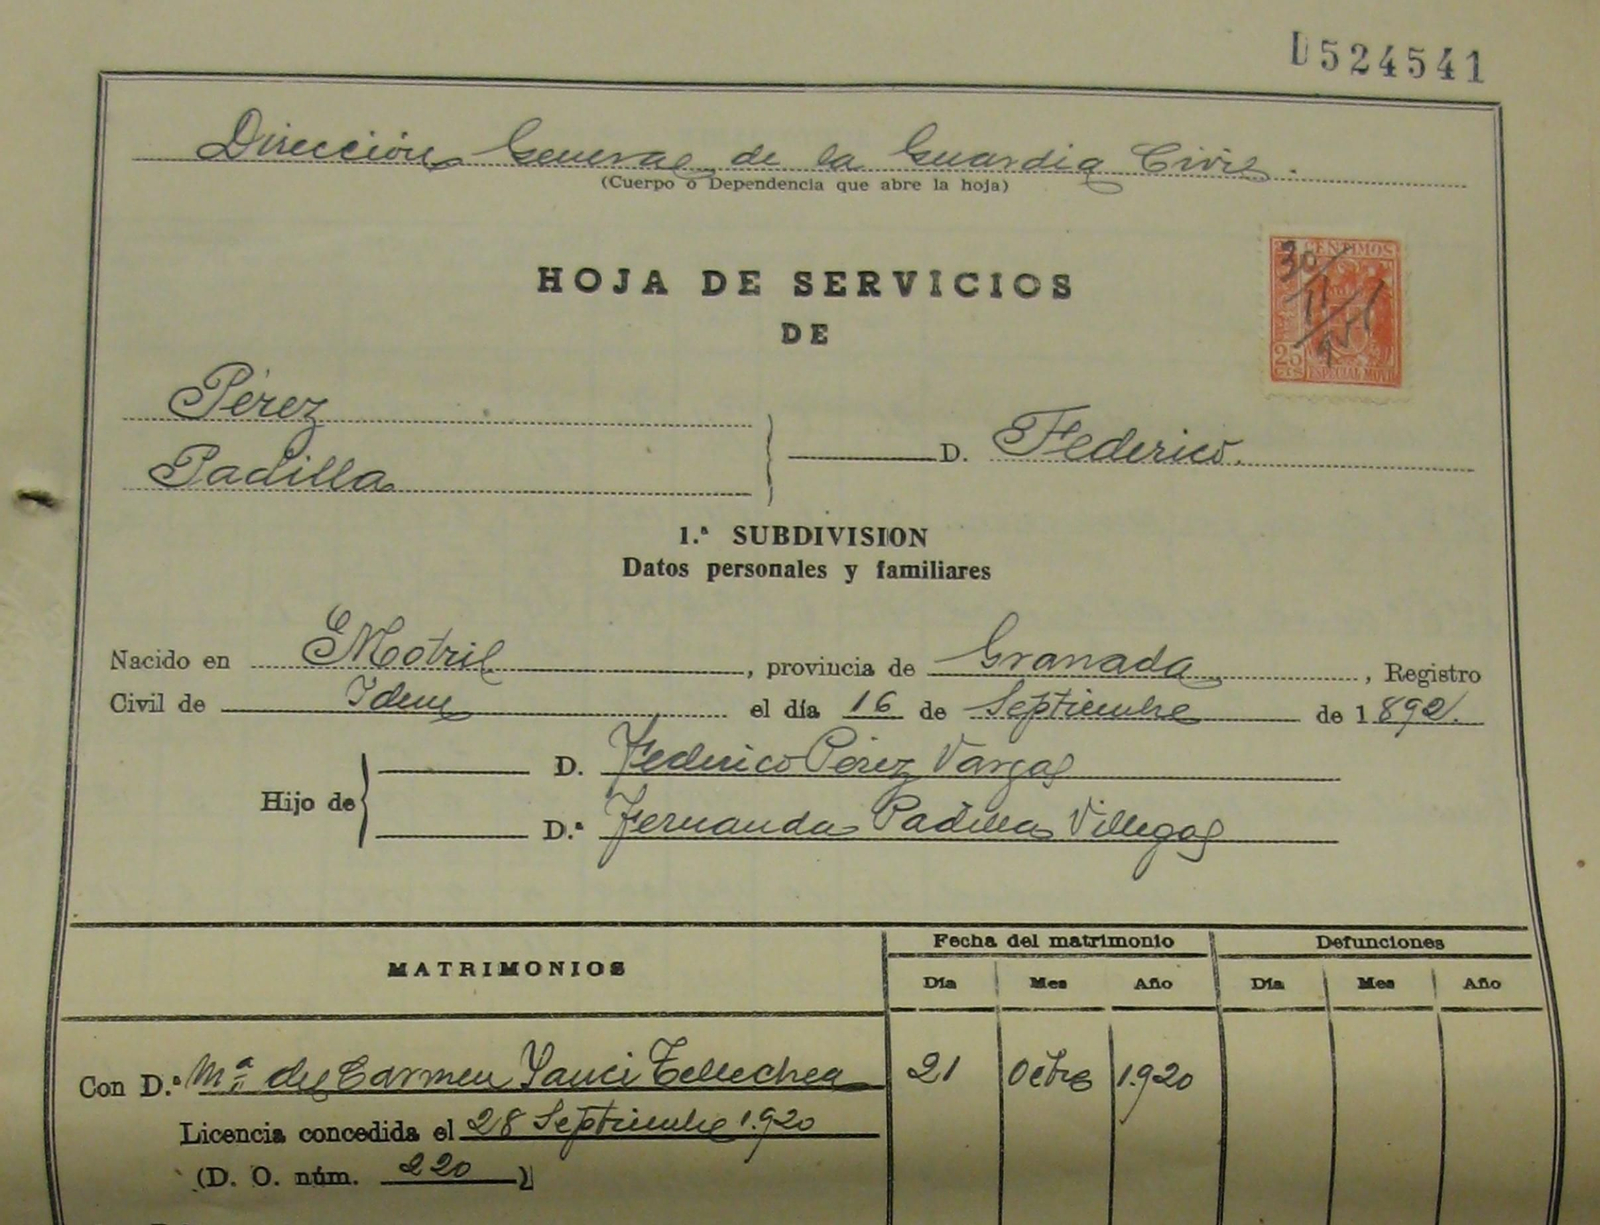 D524541
Dirección General de la Guardia Civil.
(Cuerpo o Dependencia que abre la hoja)
25 CENTIMOS
30/11/
25 CTS ESPECIAL MOVIL
HOJA DE SERVICIOS
DE
Pérez
Padilla
D. Federico.
1.ª SUBDIVISION
Datos personales y familiares
Nacido en Motril, provincia de Granada, Registro
Civil de Idem el día 16 de Septiembre de 1892.
Hijo de
D. Federico Pérez Vargas
D.ª Fernanda Padilla Villegas
MATRIMONIOS Fecha del matrimonio Defunciones
Día Mes Año Día Mes Año
Con D.ª Mª del Carmen Sanci Tellechea 21 Octbre 1.920
Licencia concedida el 28 Septiembre 1.920
(D. O. núm. 220)